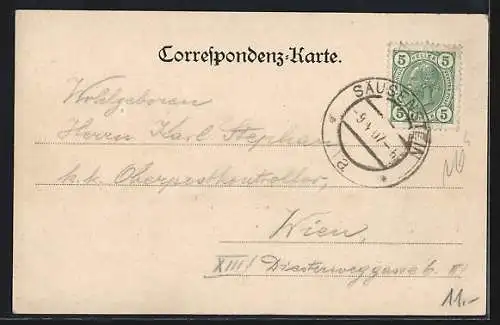 Correspondenz-Karte.
5 HELLER 5
5 5
SÄUSENSTEIN
9.4.07
Wohlgeboren
Herrn Karl Stephan
k. k. Oberpostkontrollor,
Wien,
XIII/ Diesterweggasse 6.
11.-